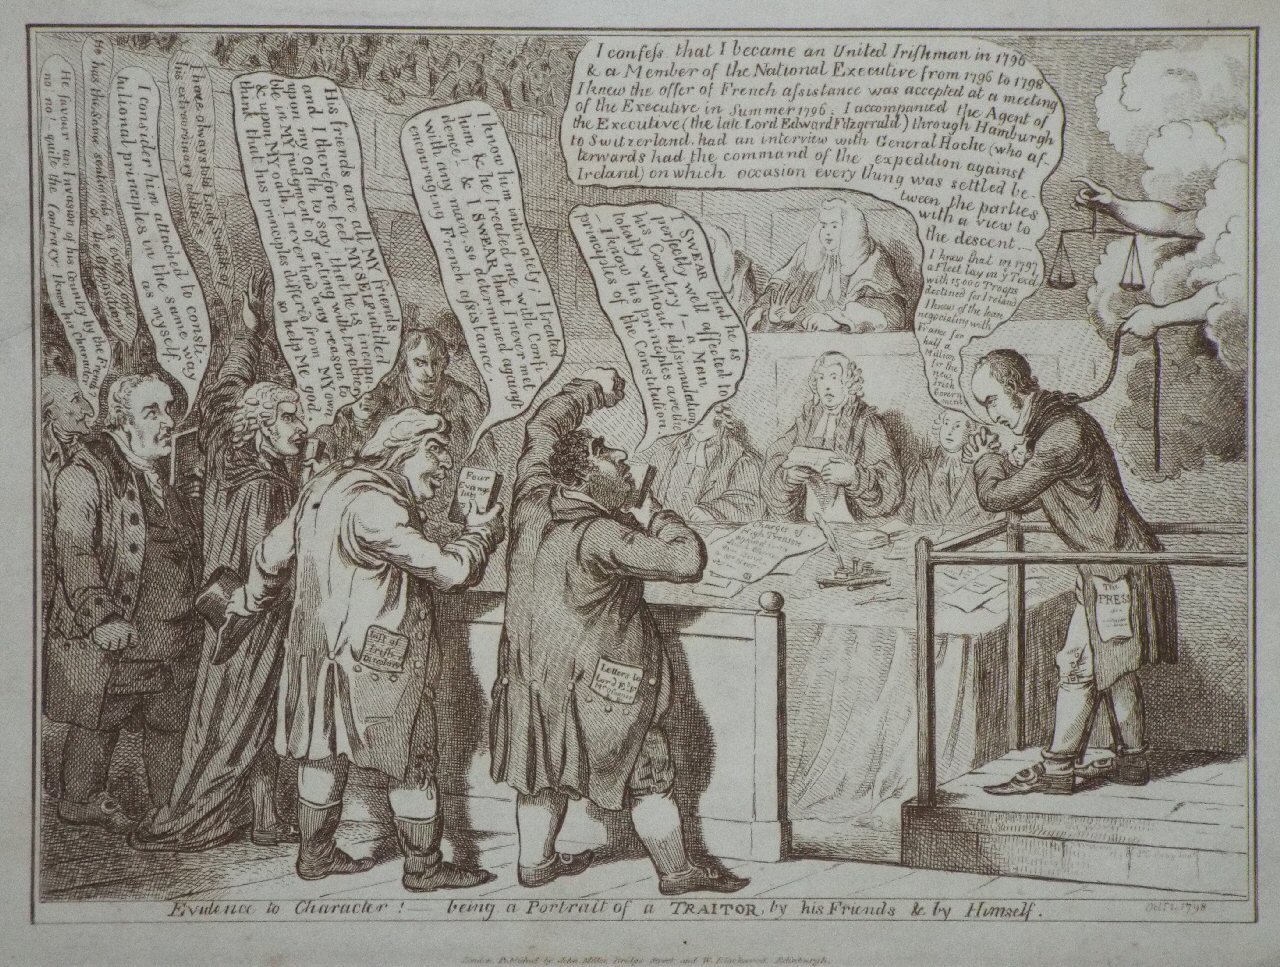 He favour an Invasion of his Country by the French?
no no! quite the Contrary I know his Character
to hold the Same sentiments as every one
of the Opposition
I consider him attached to consti:
:tutional principles in the same way
as myself
I have always told Lady
his extraordinary abilities
His friends are all MY friends
and I therefore feel MYSELF intitled
upon my oath to say, that he is incapa:
:ble in MY judgment of acting with treachery
& upon MY oath, I never had any reason to
think that his principles differ'd from MY own
so help Me god
I know him intimately, I treated
him! & he treated me with Confi:
dence! & I SWEAR that I never met
with any man, so determined against
encouraging French assistance.
I SWEAR that he is
perfectly well affected to
his Country — a Man
totally without dissimulation
— I know his principles are the
principles of the Constitution
I confess that I became an United Irishman in 1796
& a Member of the National Executive from 1796 to 1798
I knew the offer of French assistance was accepted at a meeting
of the Executive in Summer 1796; I accompanied the Agent of
the Executive (the late Lord Edward Fitzgerald) through Hamburgh
to Switzerland, had an interview with General Hoche (who af-
terwards had the command of the expedition against
Ireland) on which occasion every thing was settled be-
'tween the parties
with a view to
the descent. —
I knew that in 1797
a Fleet lay in ye Texel
with 15000 Troops
destined for Ireland
I knew of the loan
negociating with
France for
half a
Million
for the
new
Irish
Govern
ment
Four
Evange
lists
List of
Irish
Directory
Letters to
Lord Ed
Charges of
High Treason
The
PRESS
Evidence to Character! — being a Portrait of a TRAITOR, by his Friends & by Himself.
Oct 1. 1798
London Published by John Miller Bridge Street and W. Blackwood Edinburgh.